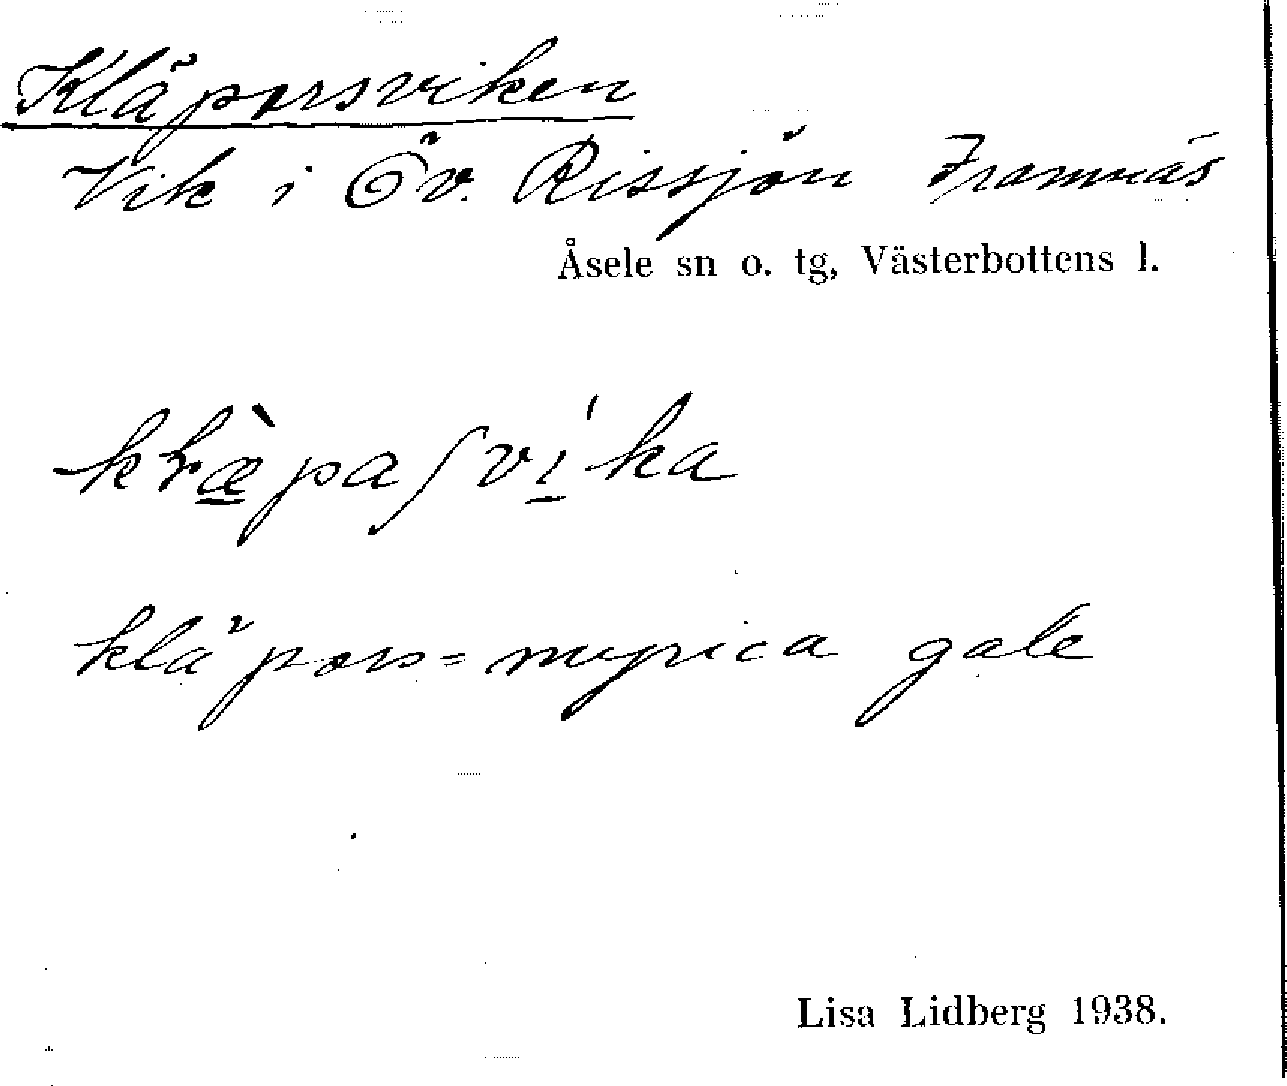 Kläporsviken
Vik i Öv. Rissjön Framnäs
Åsele sn o. tg, Västerbottens l.
kɬæ̲̀paʃví̲ka
kläpors = myrica gale
Lisa Lidberg 1938.